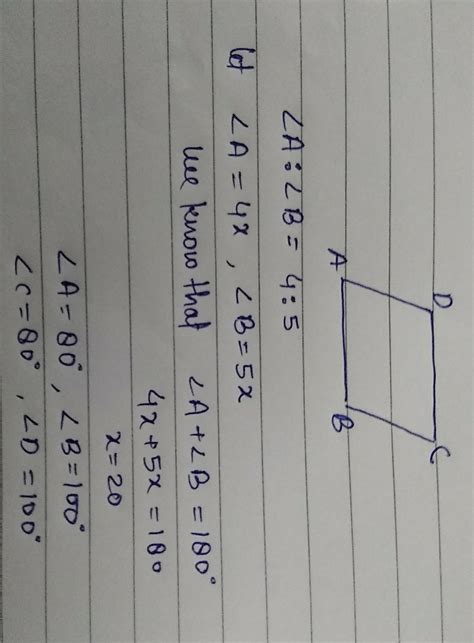 D C
A B
∠A:∠B = 4:5
let ∠A = 4x , ∠B = 5x
we know that ∠A+∠B = 180°
4x+5x = 180
x = 20
∠A = 80° , ∠B = 100°
∠C = 80° , ∠D = 100°